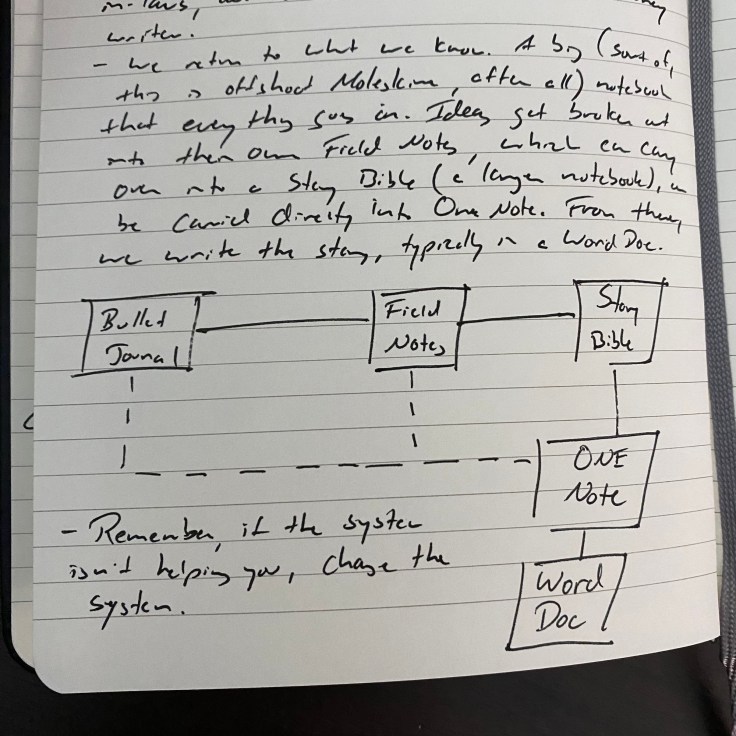 in-laws,
writer.
- We return to what we know. A big (sort of,
this is offshoot Moleskine, after all) notebook
that everything goes in. Ideas get broken out
into their own Field Notes, which can carry
over into a Story Bible (a larger notebook), or
be carried directly into One Note. From there,
we write the story, typically in a Word Doc.
Bullet
Journal
Field
Notes
Story
Bible
ONE
Note
- Remember, if the system
isn't helping you, change the
system.
Word
Doc